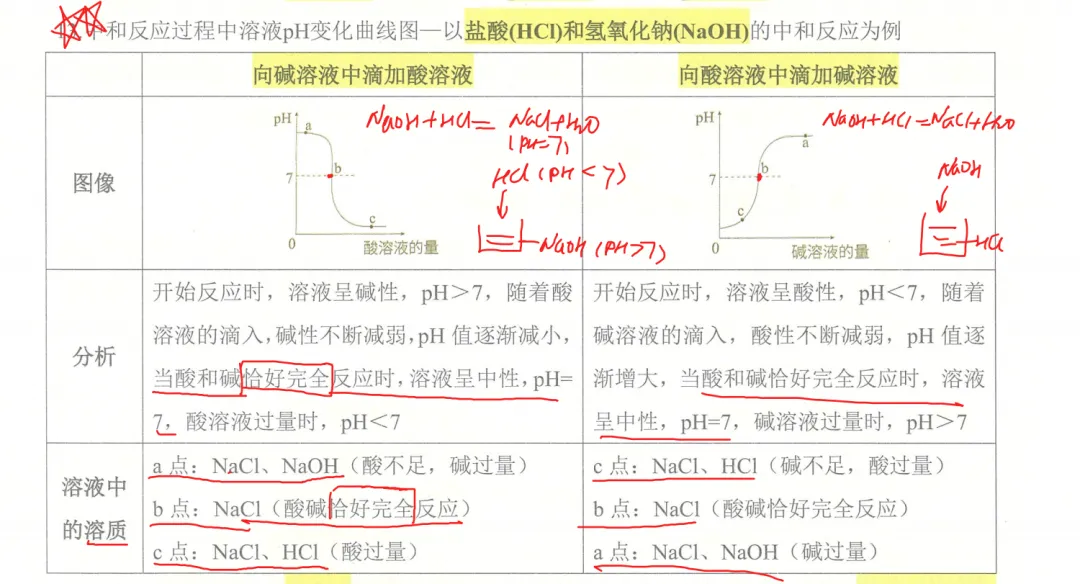 中和反应过程中溶液pH变化曲线图—以盐酸(HCl)和氢氧化钠(NaOH)的中和反应为例
向碱溶液中滴加酸溶液
向酸溶液中滴加碱溶液
图像
pH
a
7
b
c
0
酸溶液的量
NaOH+HCl=NaCl+H2O
(PH=7)
HCl(PH<7)
NaOH(PH>7)
pH
a
7
b
c
0
碱溶液的量
NaOH+HCl=NaCl+H2O
NaOH
HCl
分析
开始反应时，溶液呈碱性，pH＞7，随着酸
溶液的滴入，碱性不断减弱，pH 值逐渐减小，
当酸和碱恰好完全反应时，溶液呈中性，pH=
7，酸溶液过量时，pH＜7
开始反应时，溶液呈酸性，pH<7，随着
碱溶液的滴入，酸性不断减弱，pH 值逐
渐增大，当酸和碱恰好完全反应时，溶液
呈中性，pH=7，碱溶液过量时，pH＞7
溶液中
的溶质
a 点：NaCl、NaOH（酸不足，碱过量）
b 点：NaCl（酸碱恰好完全反应）
c 点：NaCl、HCl（酸过量）
c 点：NaCl、HCl（碱不足，酸过量）
b 点：NaCl（酸碱恰好完全反应）
a 点：NaCl、NaOH（碱过量）